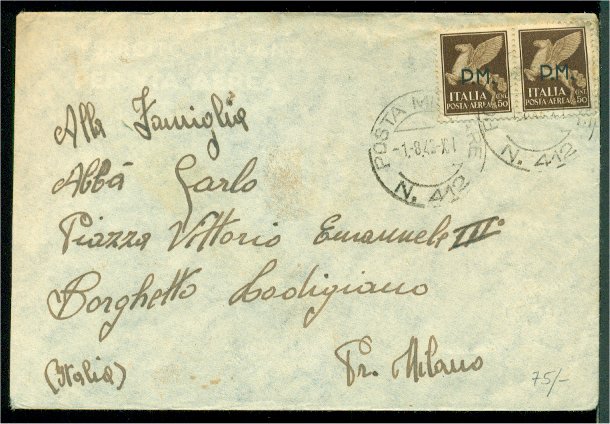 DM. DM.
ITALIA ITALIA
POSTA AEREA POSTA AEREA
CENT 50 CENT 50
POSTA MILITARE
N. 412
N. 412
Alla Famiglia
Abbà Carlo
Piazza Vittorio Emanuele III°
Borghetto Lodigiano
(Italia) Pr. Milano
75/-